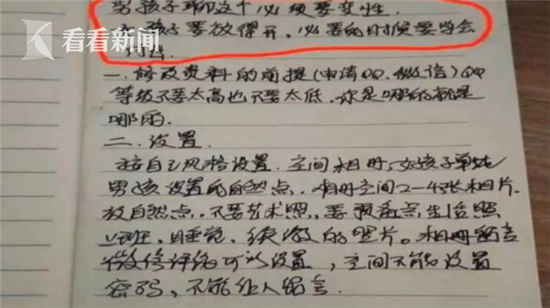 看看新闻
男孩子聊这个必须要变性
女孩子要放得开，必要的时候要学会
一．修改资料的前提（申请QQ．微信）QQ
等级不要太高也不要太低．你是哪的就是
哪的．
二．设置．
按自己风格设置．空间相册，女孩子单纯
男孩设置的自然点．相册空间2-4张相片．
放自然点．不要艺术照，要 生活照
上班，睡觉，的照片。相册留言
微信评论可以设置，空间不能设置
密码，不能让人留言．